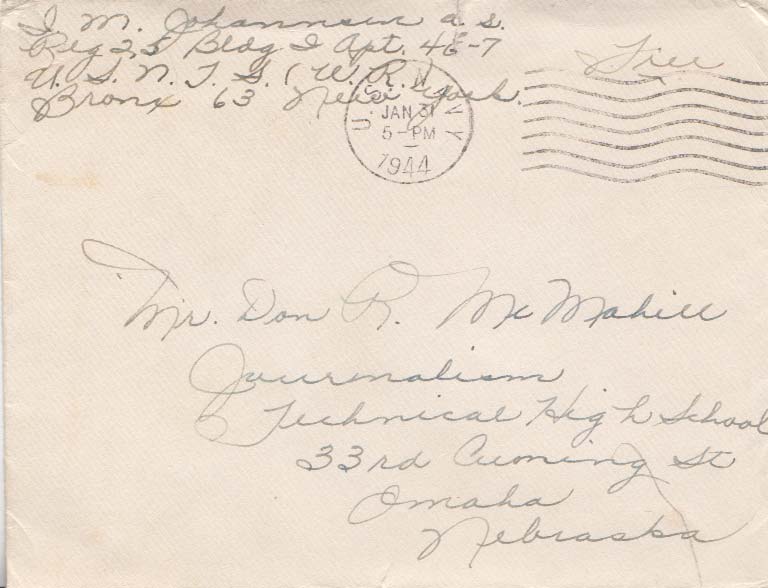 I M. Johannsen a. s.
Reg 25 Bldg I Apt. 4E-7
U. S. N. T. S. (W.R.)
Bronx 63 New York.
Free
U. S. NAVY
JAN 31
5-PM
1944
Mr. Don R. McMahill
Journalism
Technical High School
33rd Cuming St
Omaha
Nebraska